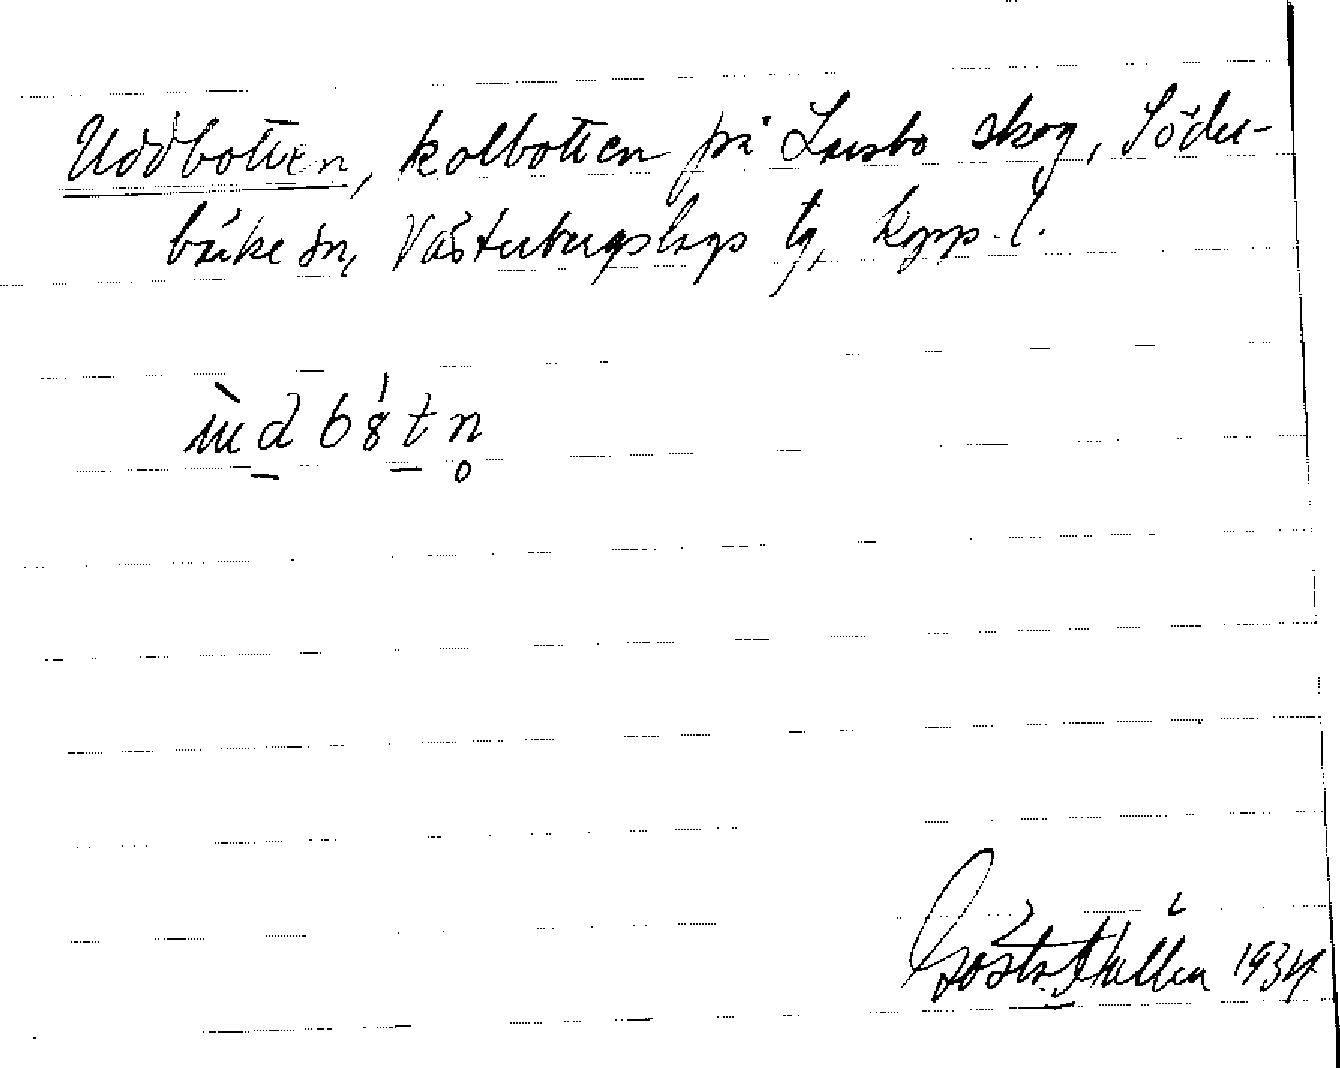 Uddbotten, kolbotten på Larsbo skog, Söder-
bärke sn, Västerbergslags tg, Kopp. l.
Gösta Hallén 1934